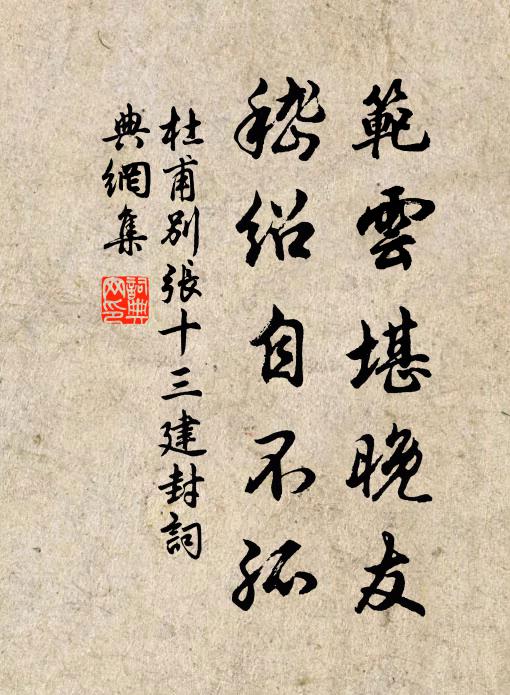 範雲堪晚友
嵇紹自不孤
杜甫別張十三建封詞
典網集
詞典
网印